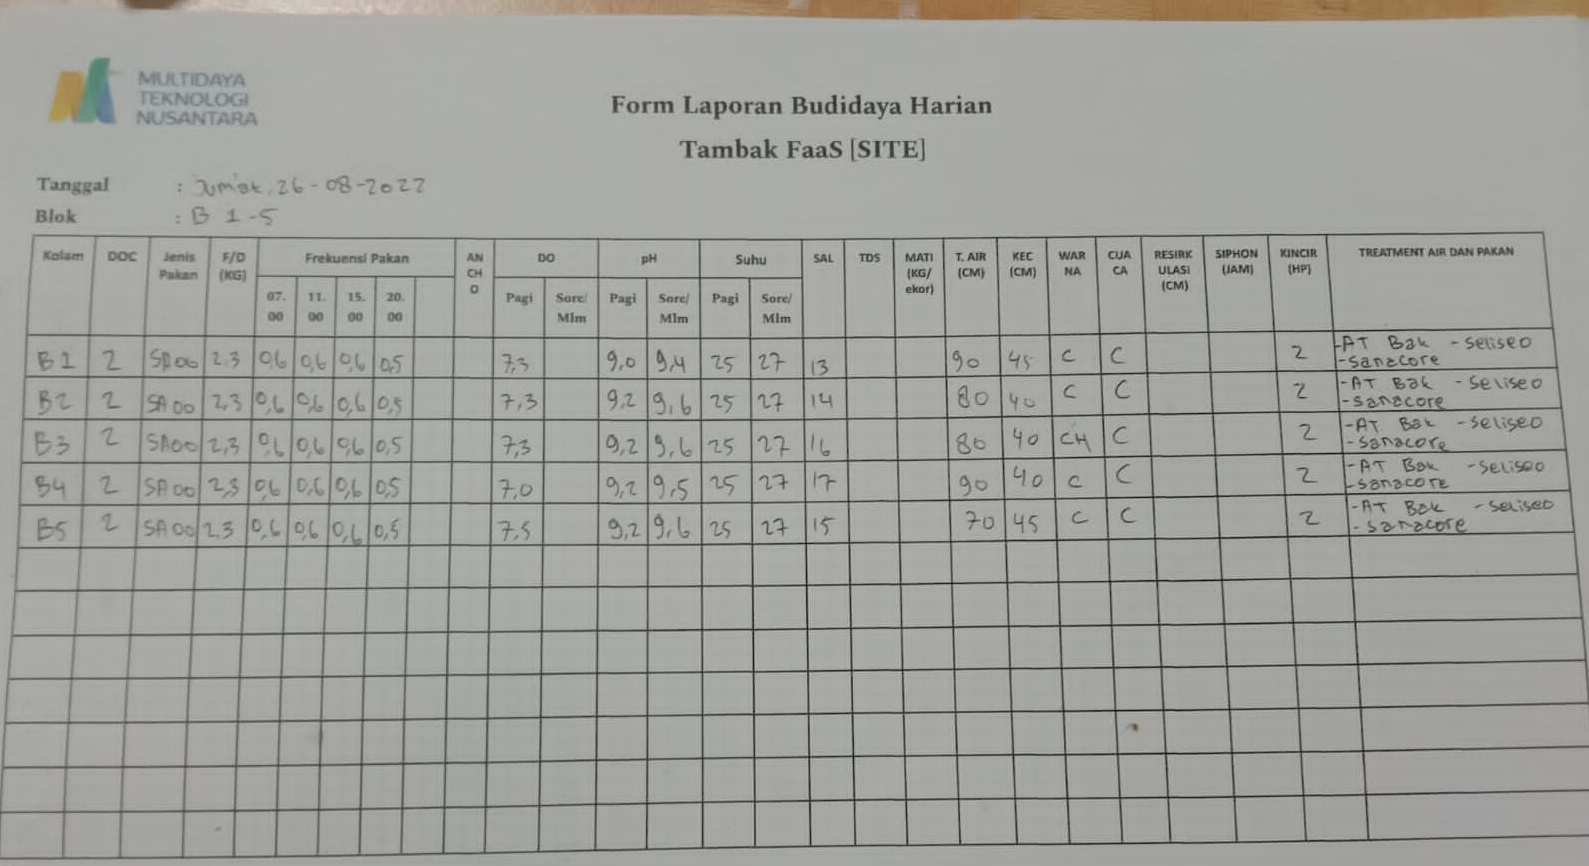 MULTIDAYA
TEKNOLOGI
NUSANTARA
Form Laporan Budidaya Harian
Tambak FaaS [SITE]
Tanggal : Jum'at, 26-08-2022
Blok : B 1-5
Kolam DOC Jenis Pakan F/D (KG) Frekuensi Pakan AN CH O DO pH Suhu SAL TDS MATI (KG/ ekor) T. AIR (CM) KEC (CM) WAR NA CUA CA RESIRK ULASI (CM) SIPHON (JAM) KINCIR (HP) TREATMENT AIR DAN PAKAN
07. 00 11. 00 15. 00 20. 00 Pagi Sore/ Mlm Pagi Sore/ Mlm Pagi Sore/ Mlm
B1 2 SA00 2,3 0,6 0,6 0,6 0,5 7,3 9,0 9,4 25 27 13 90 45 C C 2 -AT Bak -seliseo
-sanacore
B2 2 SA00 2,3 0,6 0,6 0,6 0,5 7,3 9,2 9,6 25 27 14 80 40 C C 2 -AT Bak -seliseo
-sanacore
B3 2 SA00 2,3 0,6 0,6 0,6 0,5 7,3 9,2 9,6 25 27 16 80 40 CH C 2 -AT Bak -seliseo
-sanacore
B4 2 SA00 2,3 0,6 0,6 0,6 0,5 7,0 9,2 9,5 25 27 17 90 40 C C 2 -AT Bak -seliseo
-sanacore
B5 2 SA00 2,3 0,6 0,6 0,6 0,5 7,5 9,2 9,6 25 27 15 70 45 C C 2 -AT Bak -seliseo
-sanacore